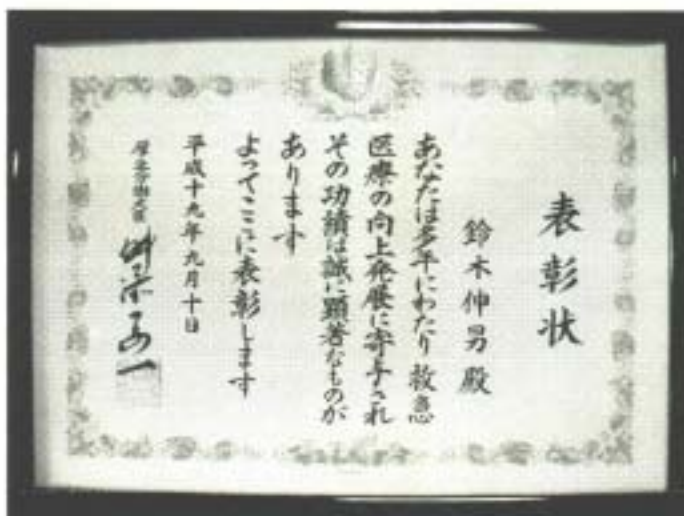 表彰状
鈴木伸男殿
あなたは多年にわたり救急
医療の向上発展に寄与され
その功績は誠に顕著なものが
あります
よってここに表彰します
平成十九年九月十日
厚生労働大臣